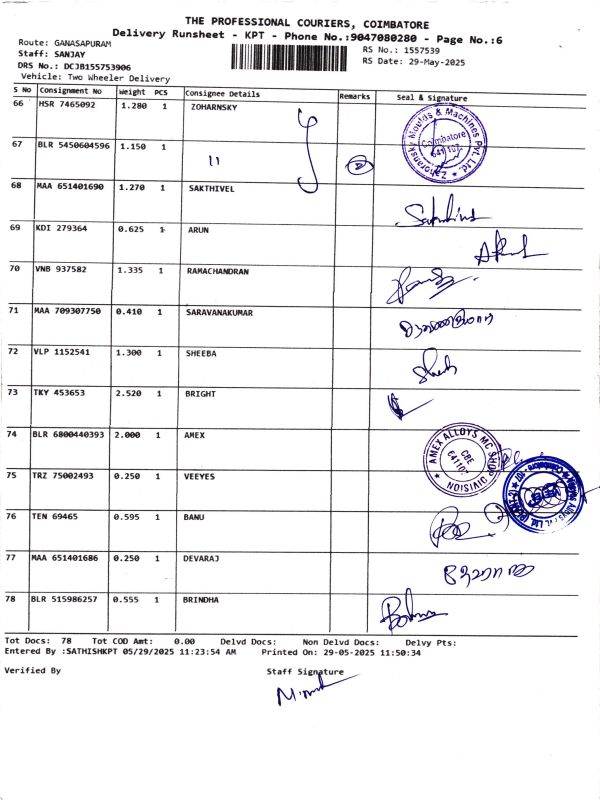 THE PROFESSIONAL COURIERS, COIMBATORE
Delivery Runsheet - KPT - Phone No.:9047080280 - Page No.:6
Route: GANASAPURAM
RS No.: 1557539
Staff: SANJAY
RS Date: 29-May-2025
DRS No.: DCJB155753906
Vehicle: Two Wheeler Delivery
S No Consignment No Weight PCS Consignee Details Remarks Seal & Signature
66 HSR 7465092 1.280 1 ZOHARNSKY
Zahoransky Moulds & Machines Pvt. Ltd.
Coimbatore
641 107
67 BLR 5450604596 1.150 1 11 2
68 MAA 651401690 1.270 1 SAKTHIVEL
69 KDI 279364 0.625 1 ARUN
70 VNB 937582 1.335 1 RAMACHANDRAN
71 MAA 709307750 0.410 1 SARAVANAKUMAR
72 VLP 1152541 1.300 1 SHEEBA
73 TKY 453653 2.520 1 BRIGHT
74 BLR 6800440393 2.000 1 AMEX
AMEX ALLOYS MC SHOP DIVISION
CBE
641107
75 TRZ 75002493 0.250 1 VEEYES
76 TEN 69465 0.595 1 BANU
77 MAA 651401686 0.250 1 DEVARAJ
78 BLR 515986257 0.555 1 BRINDHA
Tot Docs: 78 Tot COD Amt: 0.00 Delvd Docs: Non Delvd Docs: Delvy Pts:
Entered By :SATHISHKPT 05/29/2025 11:23:54 AM Printed On: 29-05-2025 11:50:34
Verified By Staff Signature